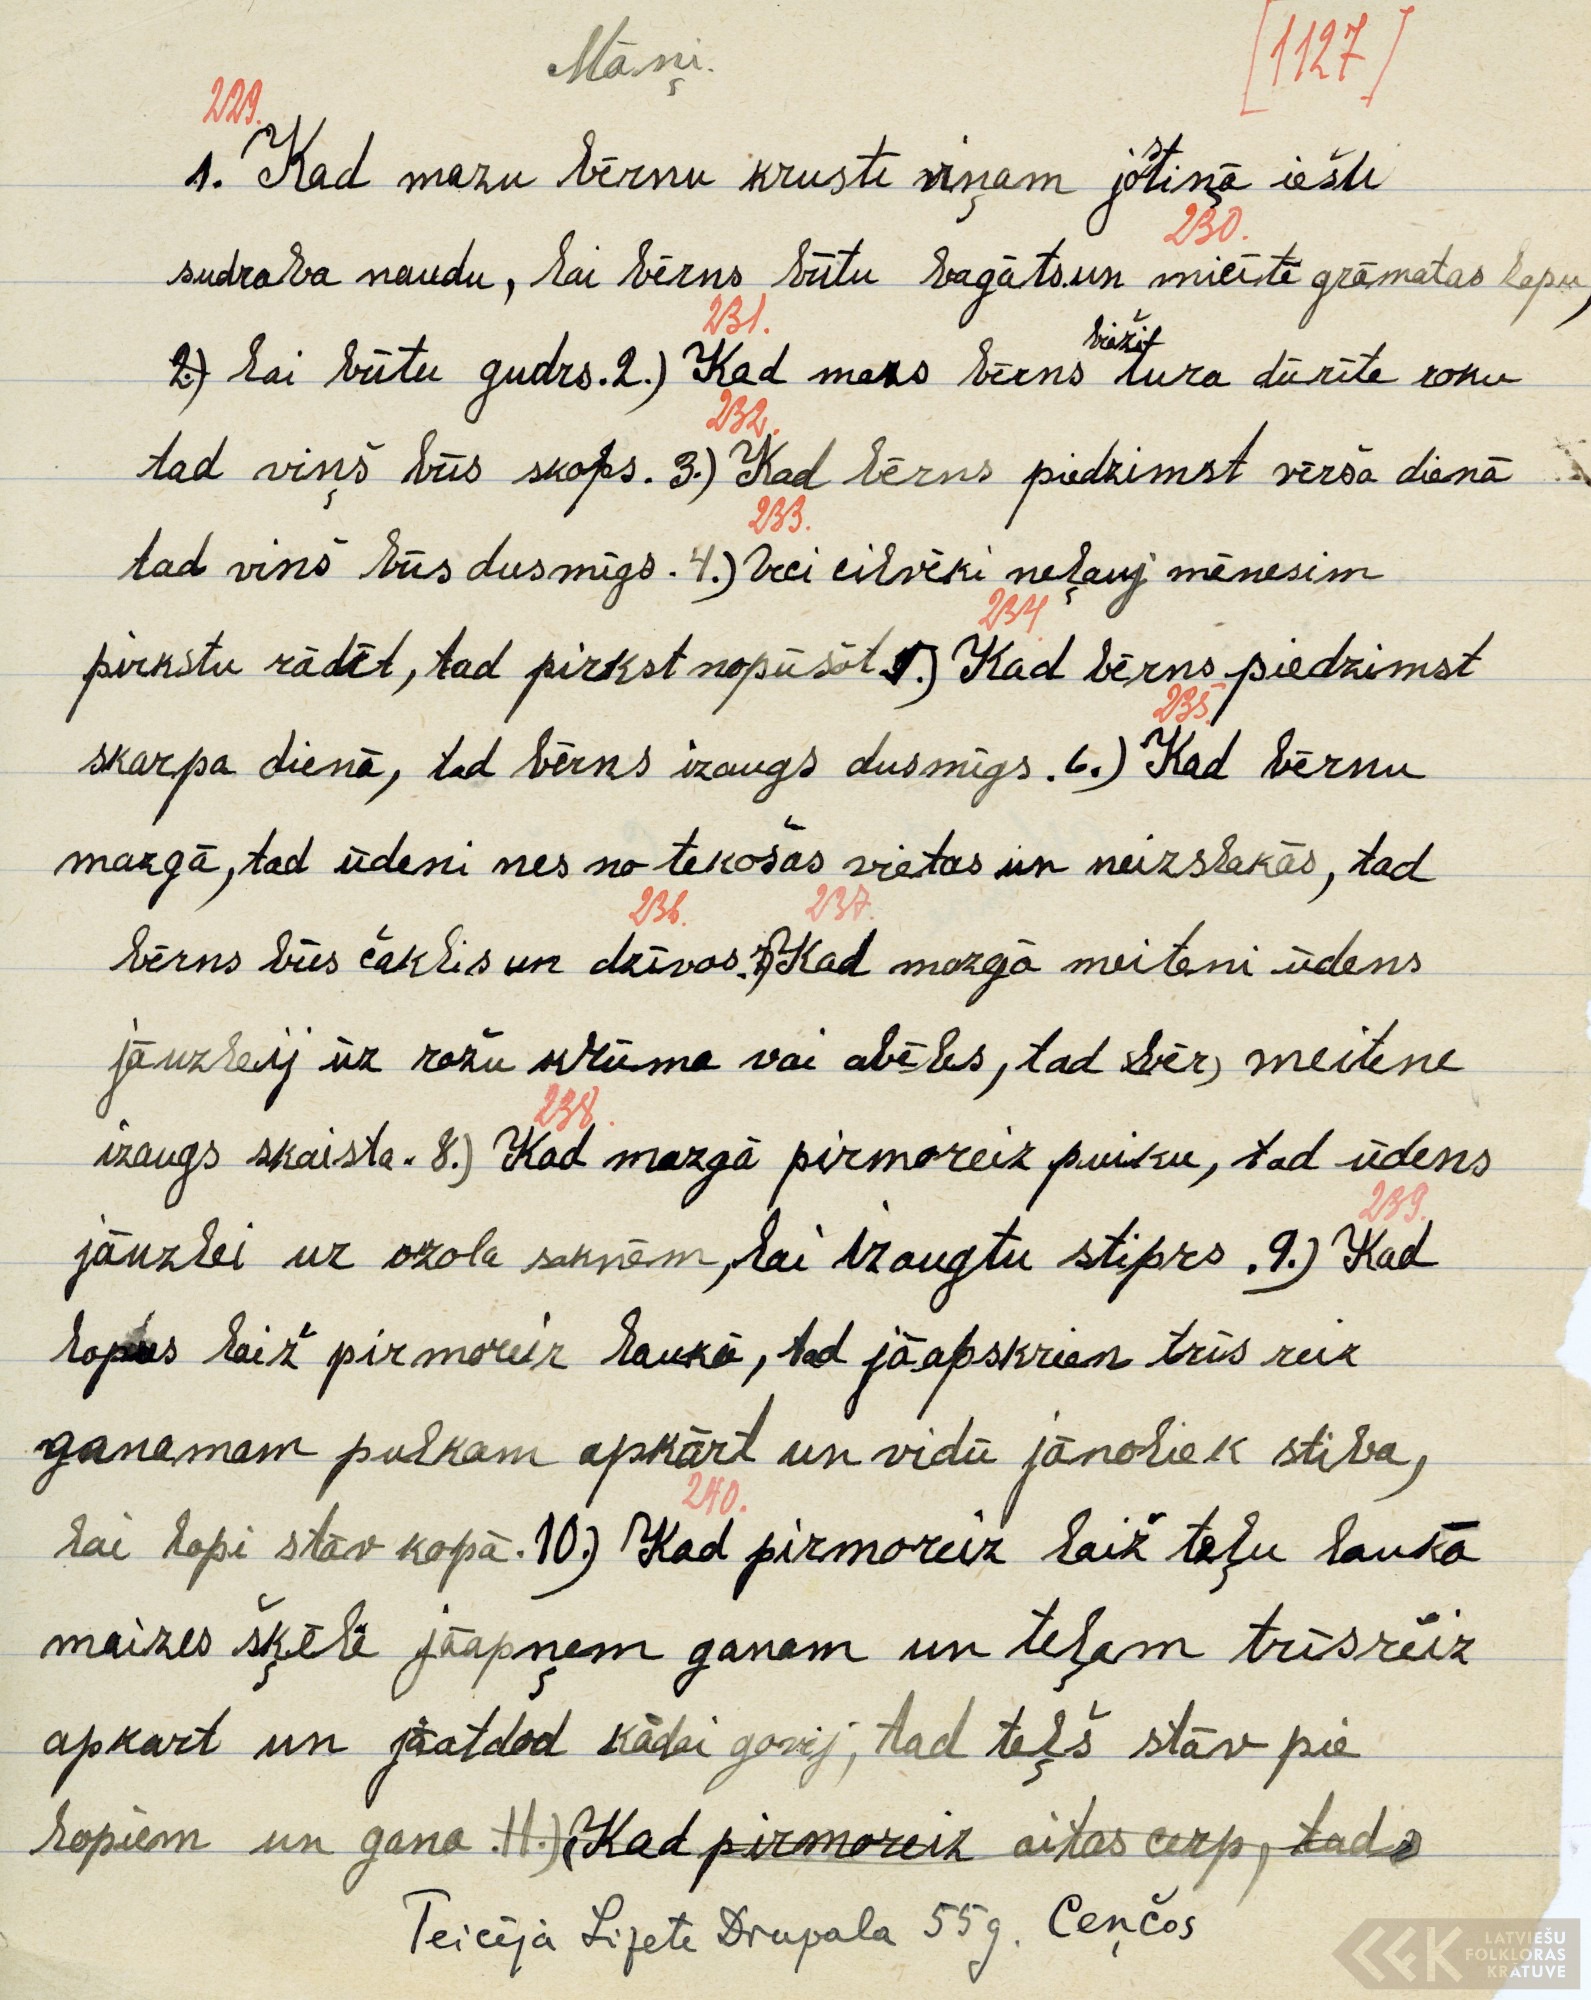 Māņi.
[1127]
229.
1. Kad mazu bērnu krusti viņam jostiņā iešu
230.
sudraba naudu, lai bērns būtu bagāts.un miciītē grāmatas lapu,
231.
2.) lai būtu gudrs. 2.) Kad mazs bērns bieži tura dūrīte roku
232.
tad viņš būs skops. 3.) Kad bērns piedzimst vērša dienā
233.
tad vinš būs dusmīgs. 4.) Veci cilvēki neļauj mēnesim
234.
pirkstu rādīt, tad pirkst nopūšot 5.) Kad bērns piedzimst
235.
skarpa dienā, tad bērns izaugs dusmīgs. 6.) Kad bērnu
mazgā, tad ūdeni nes no tekošas vietas un neizslakās, tad
236. 237.
bērns būs čaklis un dzīvos. 7) Kad mazgā meiteni ūdens
jāuzleij ūz rožu krūma vai abēles, tad bēr, meitene
238.
izaugs skaista. 8.) Kad mazgā pirmoreiz puiku, tad ūdens
239.
jāuzlei uz ozola saknēm, lai izaugtu stiprs. 9.) Kad
lopus laiž pirmoreiz laukā, tad jāapskrien trīs reiz
ganamam pulkam apkārt un vidū jānoliek stiba,
240.
lai lopi stāv kopā. 10.) Kad pirmoreiz laiž teļu laukā
maizes šķēlē jāapņem ganam un teļam trīsreiz
apkart un jāatdod kādai govij, tad teļš stāv pie
lopiem un gana. 11.) Kad pirmoreiz aitas cerp, tad
Teicēja Lizete Drupala 55 g. Ceņčos
LATVIEŠU
FOLKLORAS
KRĀTUVE